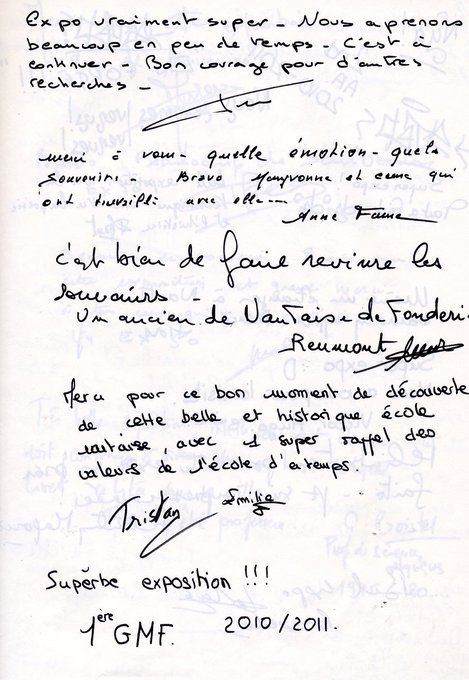 Expo vraiment super - Nous apprenons
beaucoup en peu de temps - C'est à
continuer - Bon courage pour d'autres
recherches -
merci à vous - quelle émotion - quels
souvenirs - Bravo Maryvonne et ceux qui
ont travaillé avec elle ---
Anne
c'est bien de faire revivre les
souvenirs -
Un ancien de Vantaise de Fonderie
Reumont
Merci pour ce bon moment de découverte
de cette belle et historique école
nantaise, avec 1 super rappel des
valeurs de l'école d'antemps.
Tristan Emilie
Supèrbe exposition !!!
1ère GMF. 2010/2011.